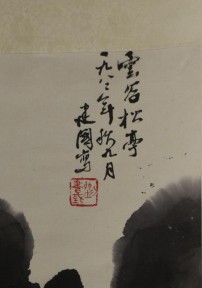 雲谷松亭
一九八二年秋九月
建國寫